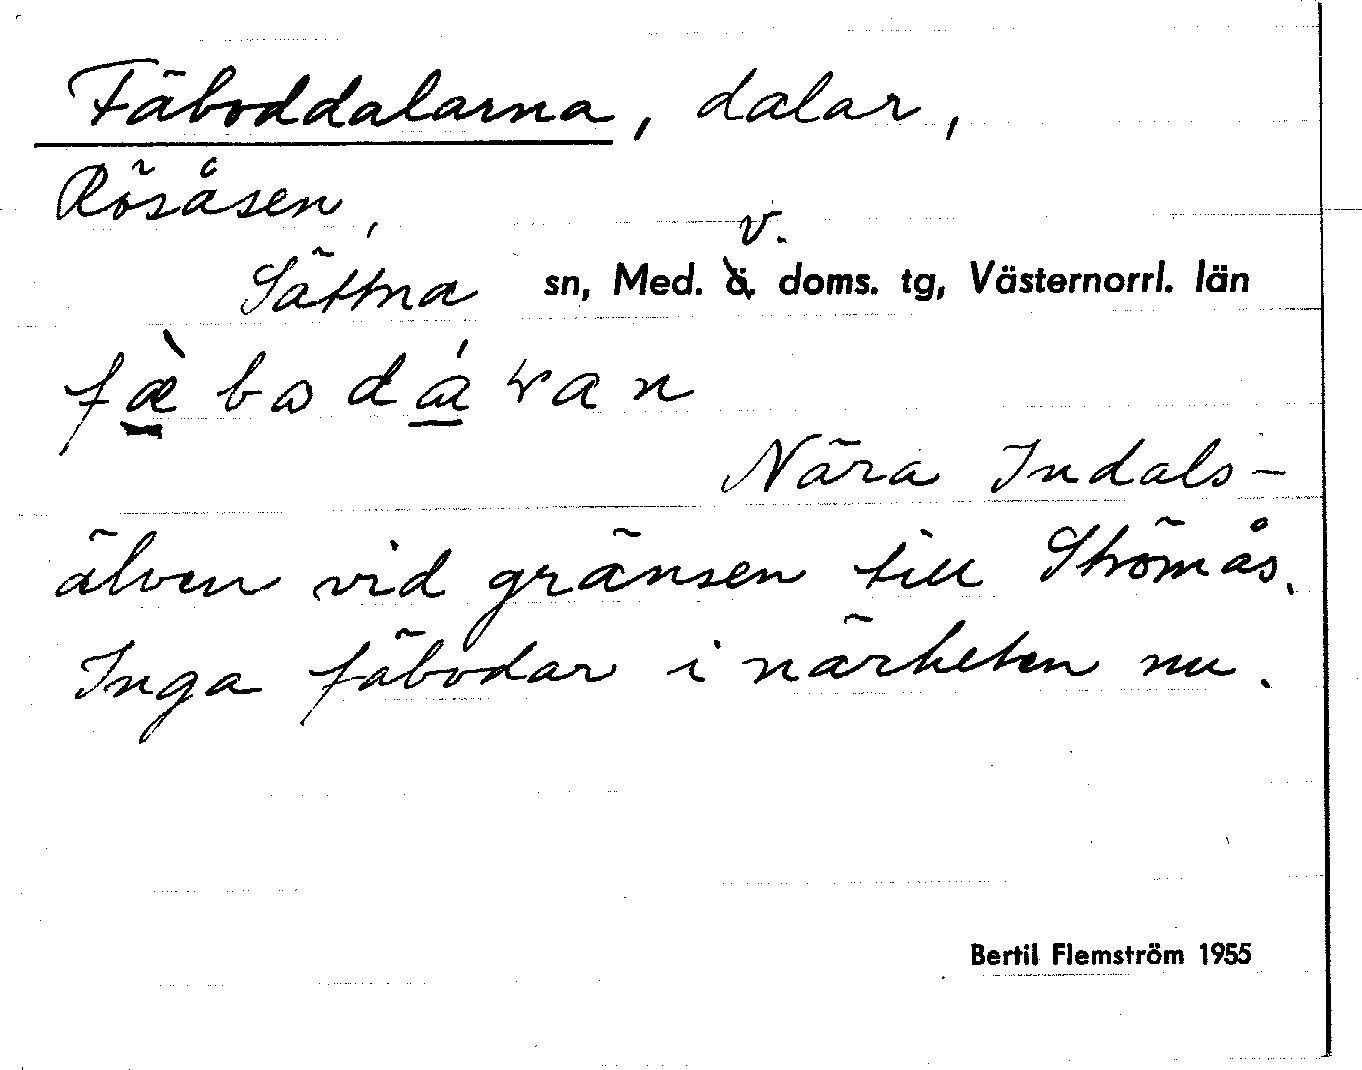 Fäboddalarna, dalar,
Rösåsen,
Sättna sn, Med. v. doms. tg, Västernorrl. län
fæ̀bodáɽan
Nära Indals-
älven vid gränsen till Strömås.
Inga fäbodar i närheten nu.
Bertil Flemström 1955